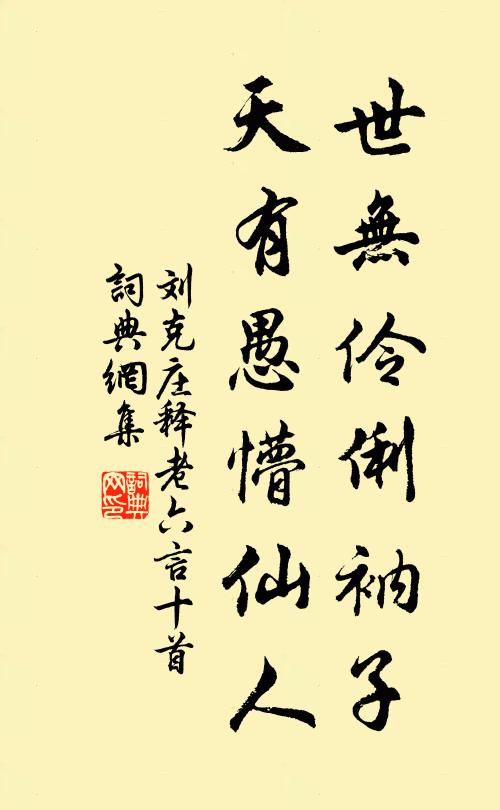 世無伶俐衲子
天有愚懵仙人
刘克庄释老六言十首
詞典網集
詞典
网印